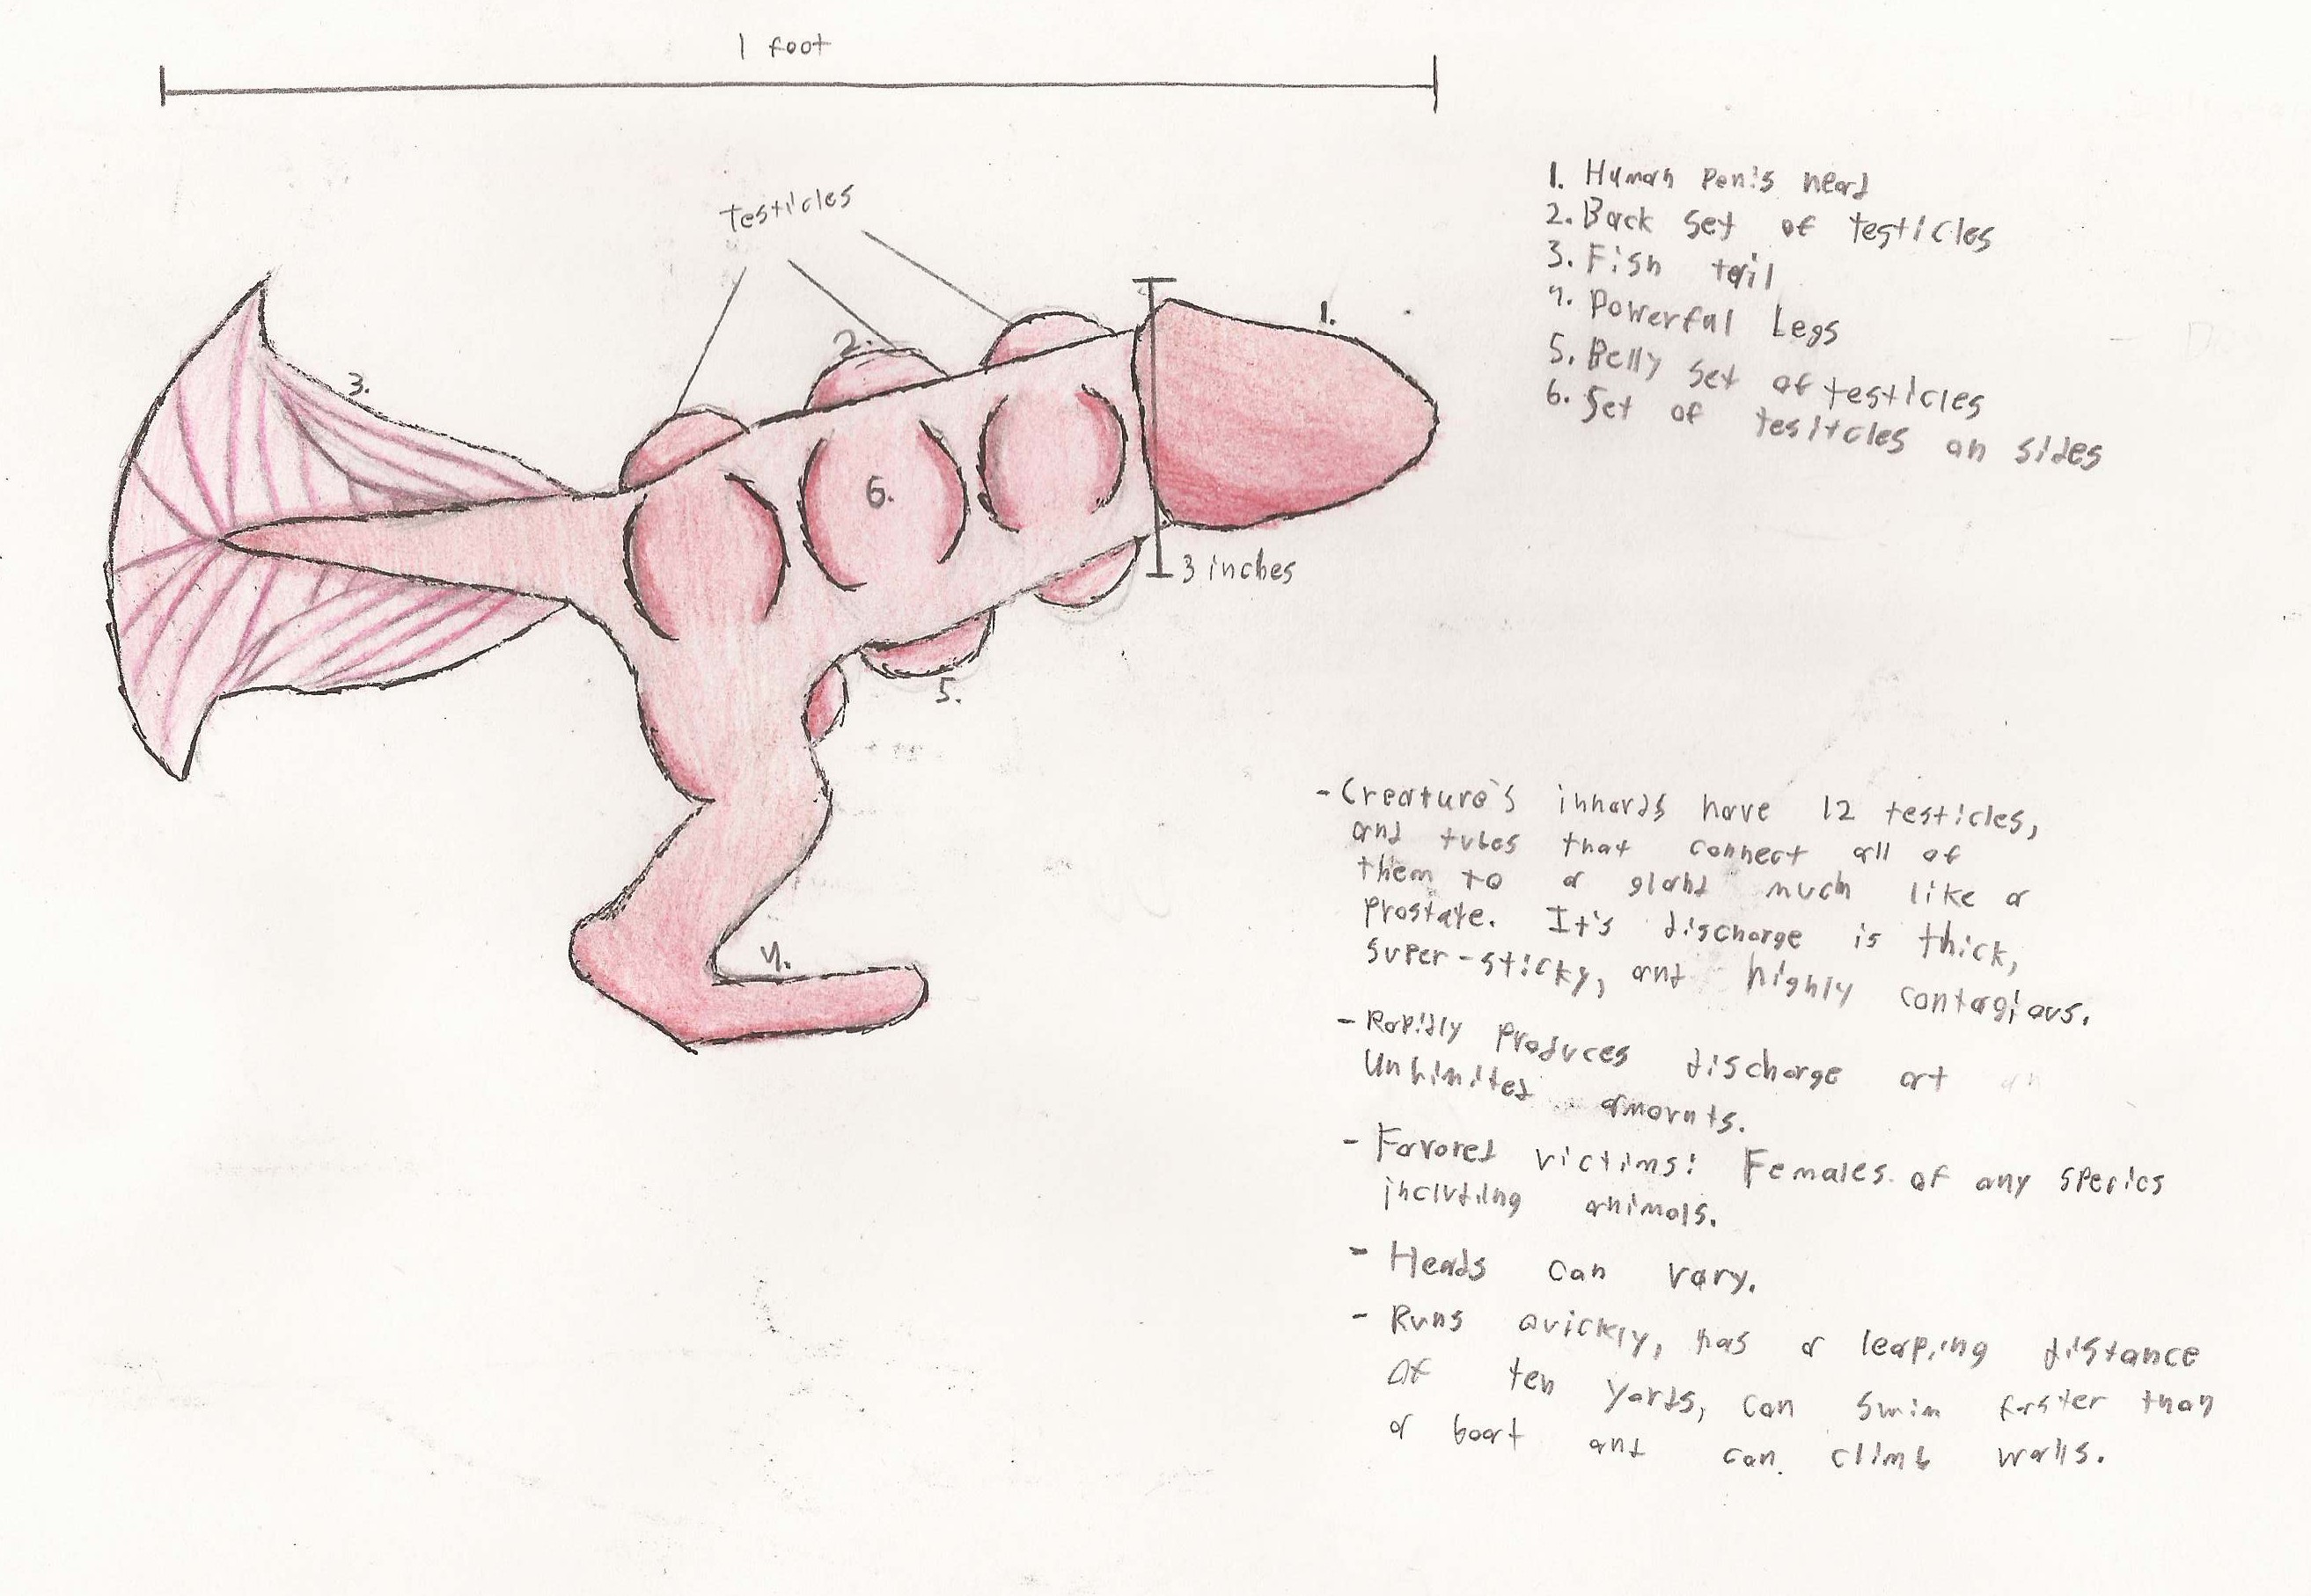 1 foot
testicles
1. Human Penis head
2. Back set of testicles
3. Fish tail
4. Powerful Legs
5. Belly set of testicles
6. Set of tesitcles on sides
1.
2.
3.
6.
3 inches
5.
4.
- Creature's innards have 12 testicles,
and tubes that connect all of
them to a gland much like a
prostate. It's discharge is thick,
super-sticky, and highly contagious.
- Rapidly Produces discharge at an
Unlimited amounts.
- Favored victims: Females of any species
including animals.
- Heads can vary.
- Runs quickly, has a leaping distance
of ten yards, can swim faster than
a boat and can climb walls.